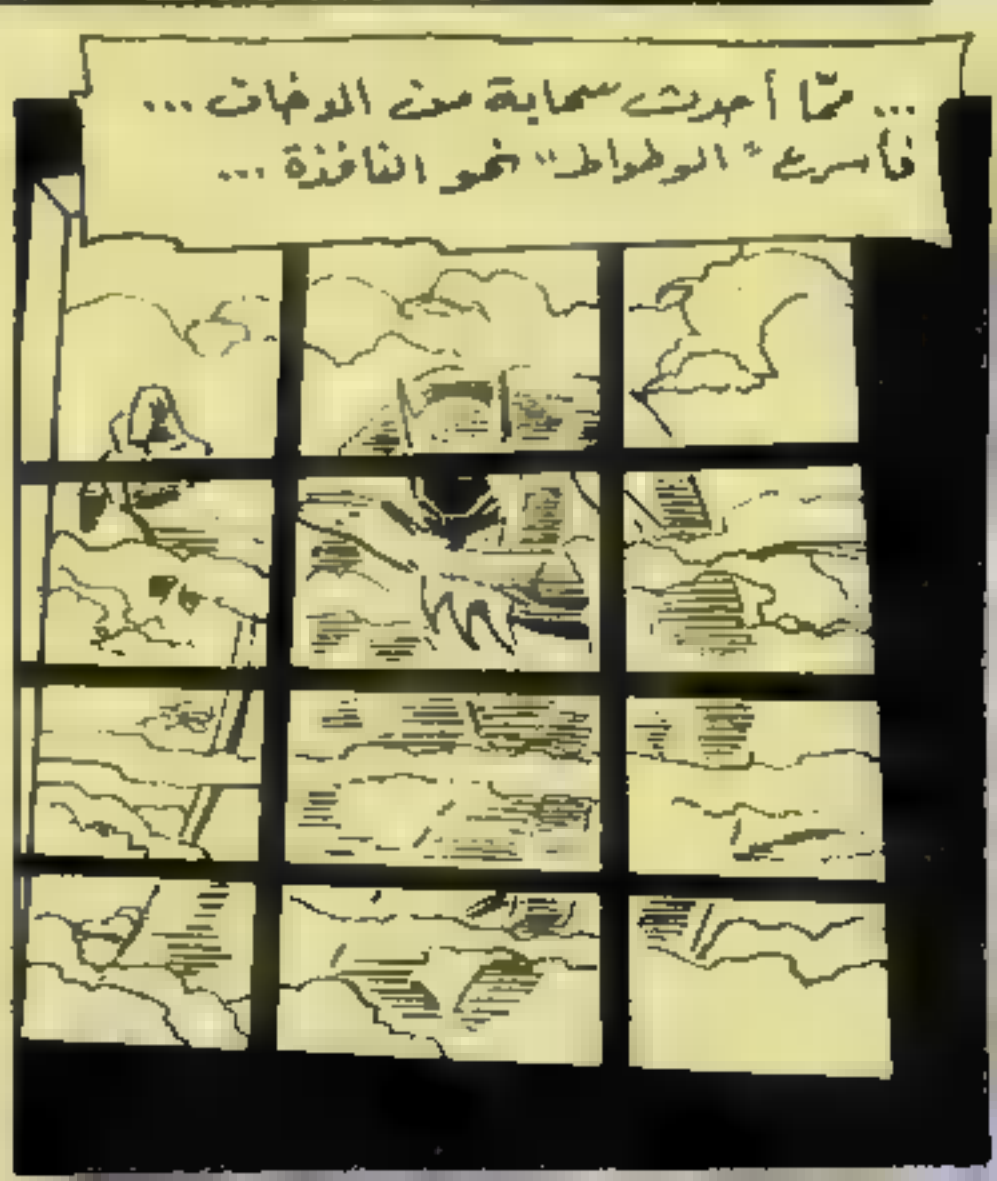 ... ممّا أحدث سحابة من الدخان ...
فأسرع "الوطواط" نحو النافذة ...